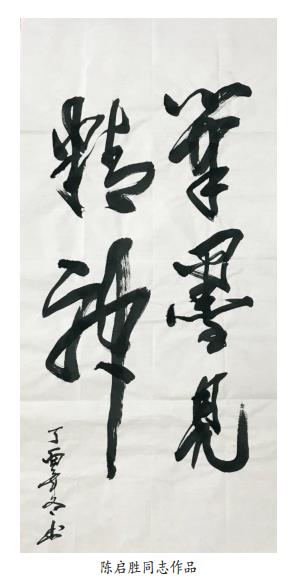 笔墨见
精神
丁酉年冬书
陈启胜同志作品